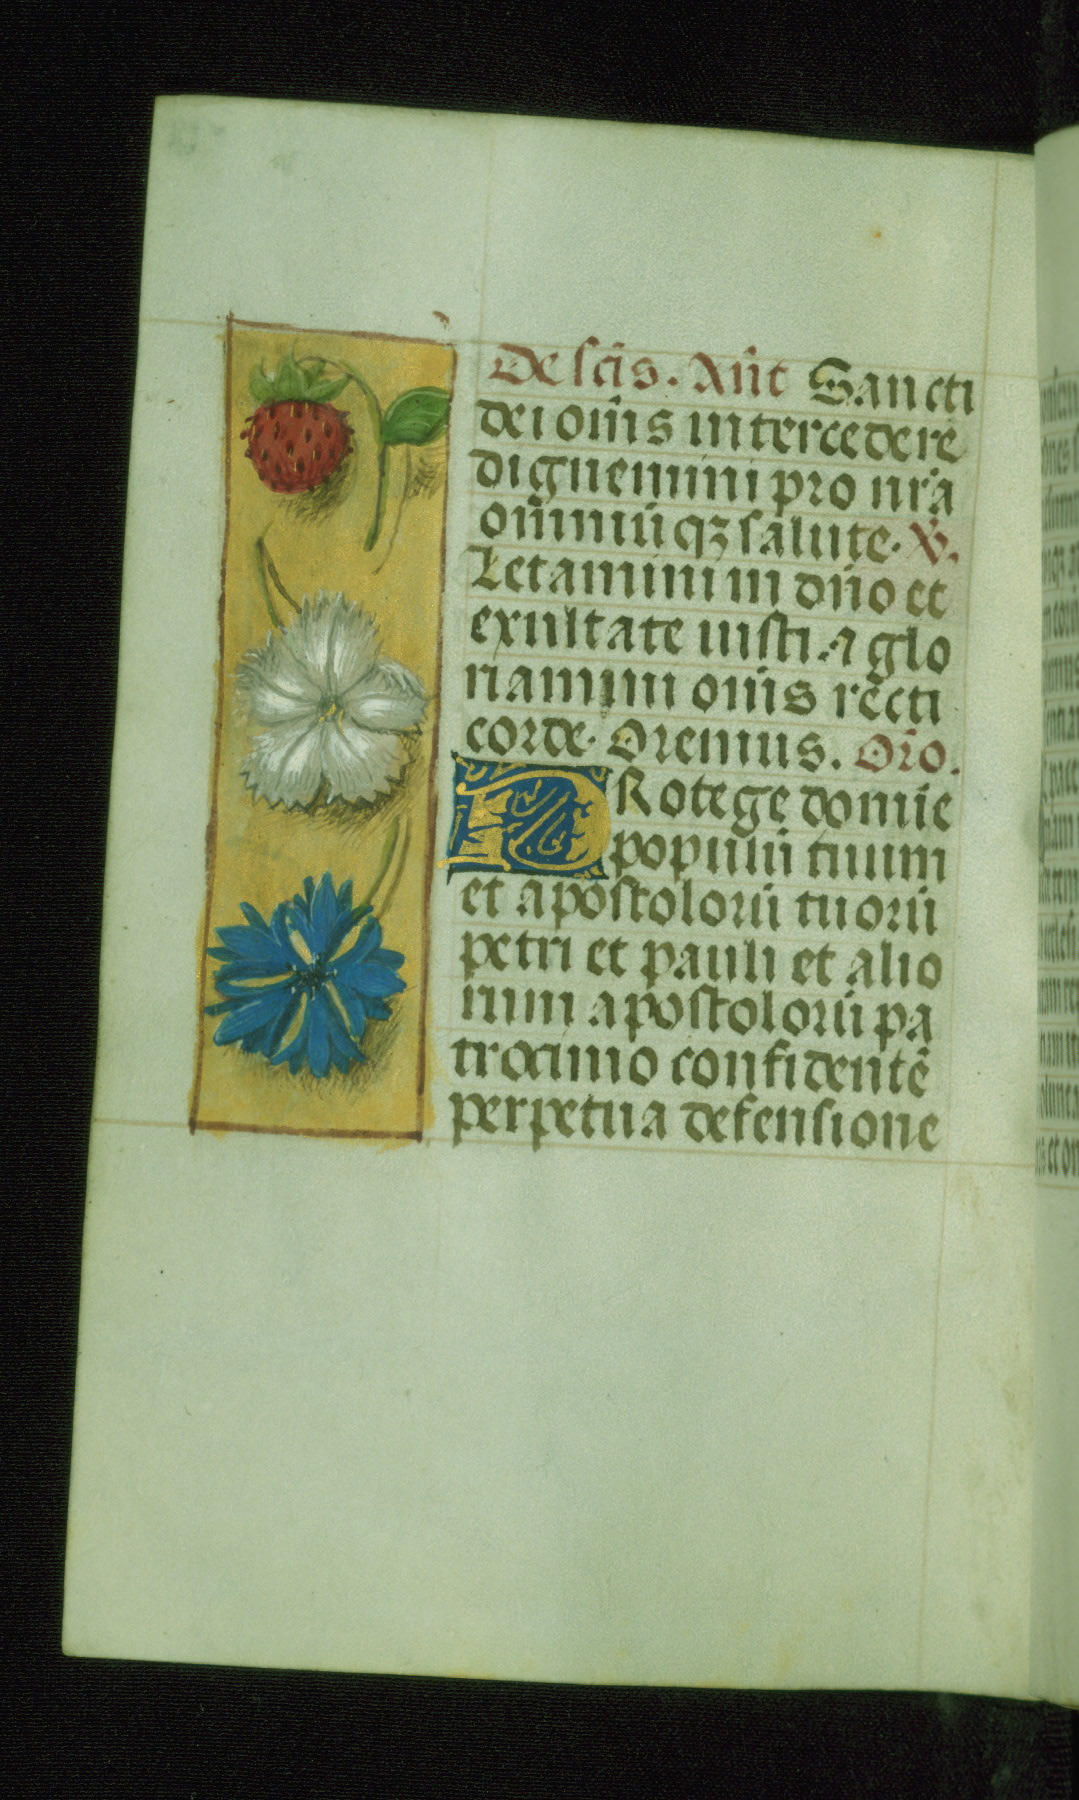 De sc̄is. An̄t Sancti
dei om̄is intercedere
dignemini pro nr̄a
omniūqꝫ salute. V.
Letamini in dn̄o et
exultate iusti. ⁊ glo
riamini om̄s recti
corde. Oremus. Or̄o.
PRotege domīe
populū tuum
et apostolorū tuorū
petri et pauli et alio
rum apostolorū pa
trocinio confidentē
perpetua defensione